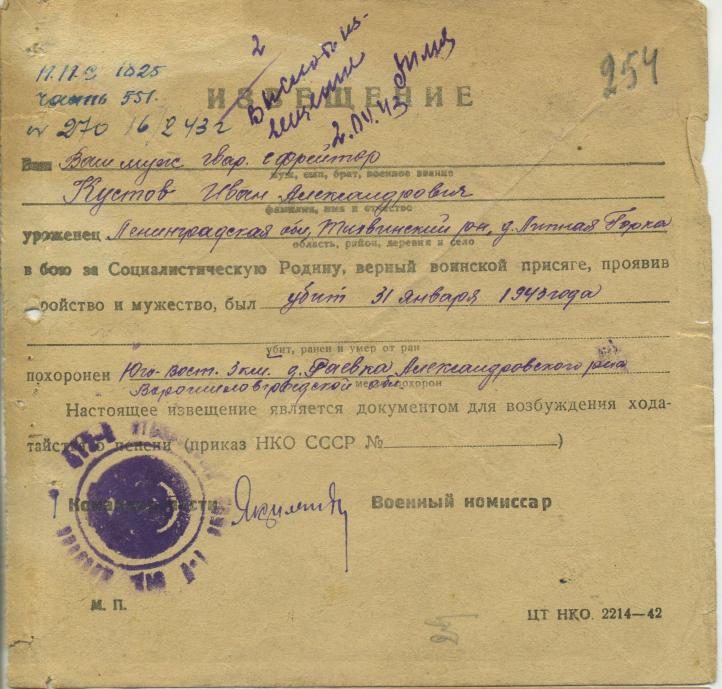 2
П.П.С 1825
часть 551.
№ 270 16/2 43 г
Выслать из-
вещение
2.04.43
254
ИЗВЕЩЕНИЕ
Ваш Ваш муж гвар. ефрейтор
муж, сын, брат, военное звание
Кустов Иван Александрович
фамилия, имя и отчество
уроженец Ленинградская обл, Тихвинский рон, д. Липная Горка
область, район, деревня и село
в бою за Социалистическую Родину, верный воинской присяге, проявив
геройство и мужество, был убит 31 января 1943 года
убит, ранен и умер от ран
похоронен Юго-вост. 3 км. д. Раевка Александровского р-на
Ворошиловградской обл.
место похорон
Настоящее извещение является документом для возбуждения хода-
тайства о пенсии (приказ НКО СССР № )
Командир части
Военный комиссар
М. П.
ЦТ НКО. 2214—42